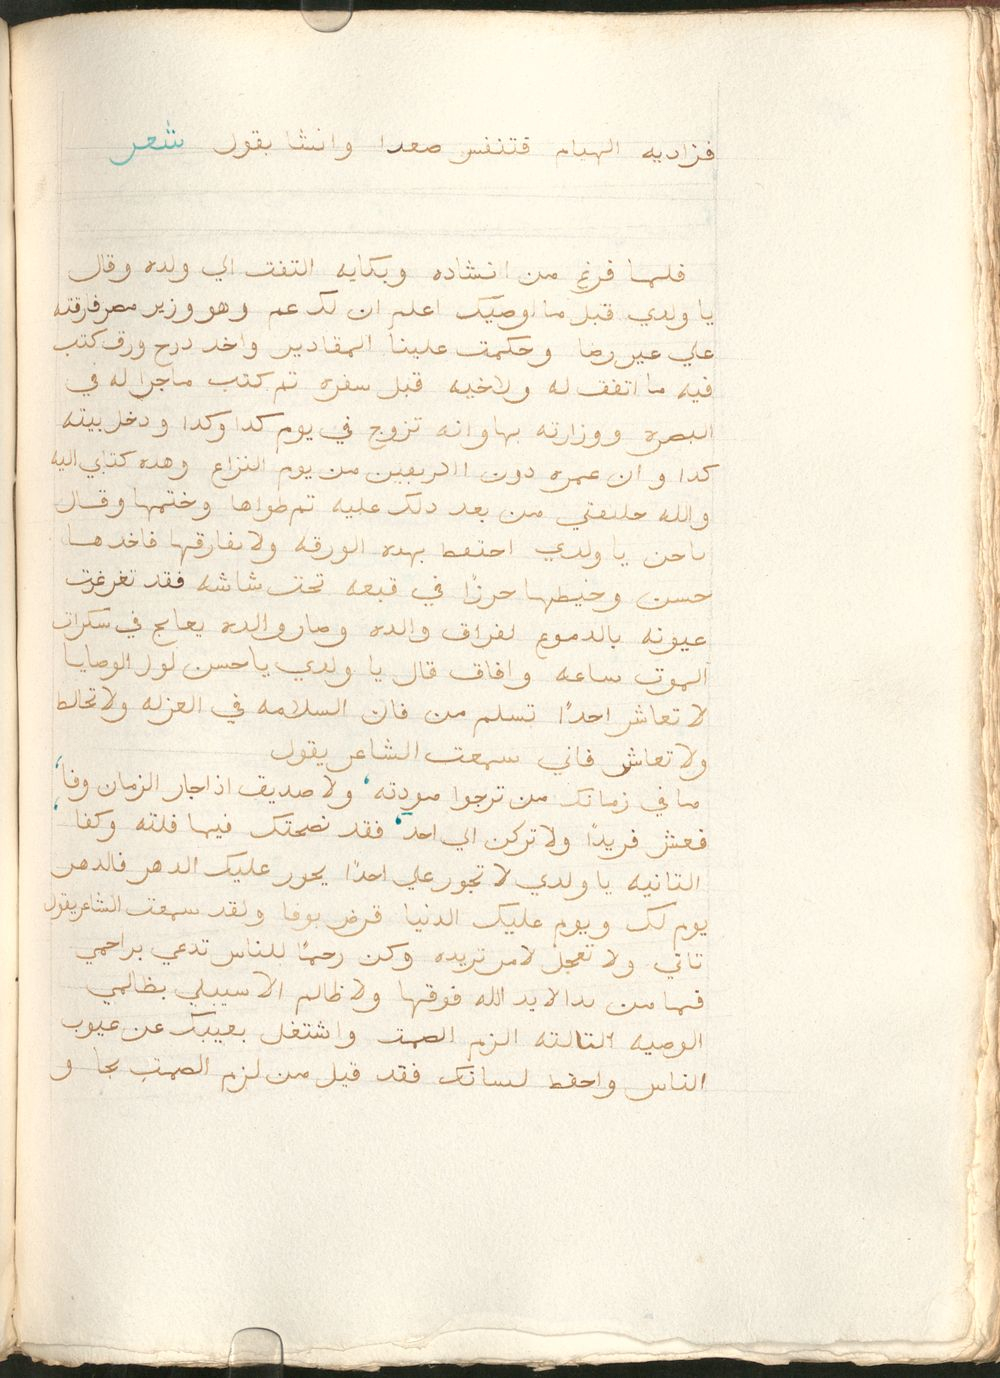 فزاد به الهيام فتنفس صعدا وانشا يقول شعر
فلما فرغ من انشاده وبكايه التفت الي ولده وقال
يا ولدي قبل ما اوصيك اعلم ان لك عم وهو وزير مصر فارقته
علي عير رضا وحكمت علينا المقادير واخد درح ورق كتب
فيه ما اتفق له ولاخيه قبل سفره تم كتب ماجرا له في
البصره ووزارته بها وانه تزوج في يوم كدا وكدا ودخل بيته
كدا وان عمره دون الاربعين من يوم النزاع وهده كتابي اليه
والله خليفتي من بعد دلك عليه تم طواها وختمها وقال
ياحن يا ولدي احتفط بهده الورقه ولا تفارقها فاخدها
حسن وخيطها حرزًا في قبعه تحت شاشه فقد تغرغرت
عيونه بالدموع لفراق والده وصار والده يعالج في سكرات
الموت ساعه وافاق قال يا ولدي ياحسن اول الوصايا
لا تعاشر احدًا تسلم من فان السلامه في العزله ولا تخالط
ولا تعاش فاني سمعت الشاعر يقول
ما في زمانك من ترجوا مودته ، ولا صديق اذا جار الزمان وفا ،
فعش فريدًا ولا تركن الي احد ، فقد نصحتك فيما قلته وكفا ،
التانيه يا ولدي لا تجور علي احدًا يجور عليك الدهر فالدهر
يوم لك ويوم عليك الدنيا قرض بوفا ولقد سمعت الشاعر يقول
تاني ولا تعجل لامر تريده وكن رحمًا للناس تدعي براحمي
فما من يدا الا يد الله فوقها ولا ظالم الا سيبلي بظالمي
الوصيه التالته الزم الصمت واشتغل بعيبك عن عيوب
الناس واحفط لسانك فقد قيل من لزم الصمت نجا و